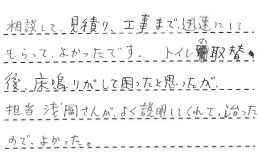 相談して、見積り、工事まで迅速にして
もらって、よかったです。 トイレの取替
後、床鳴りがして困ったと思ったが、
担当 浅岡さんが、よく説明してくれて、治った
ので、よかった。